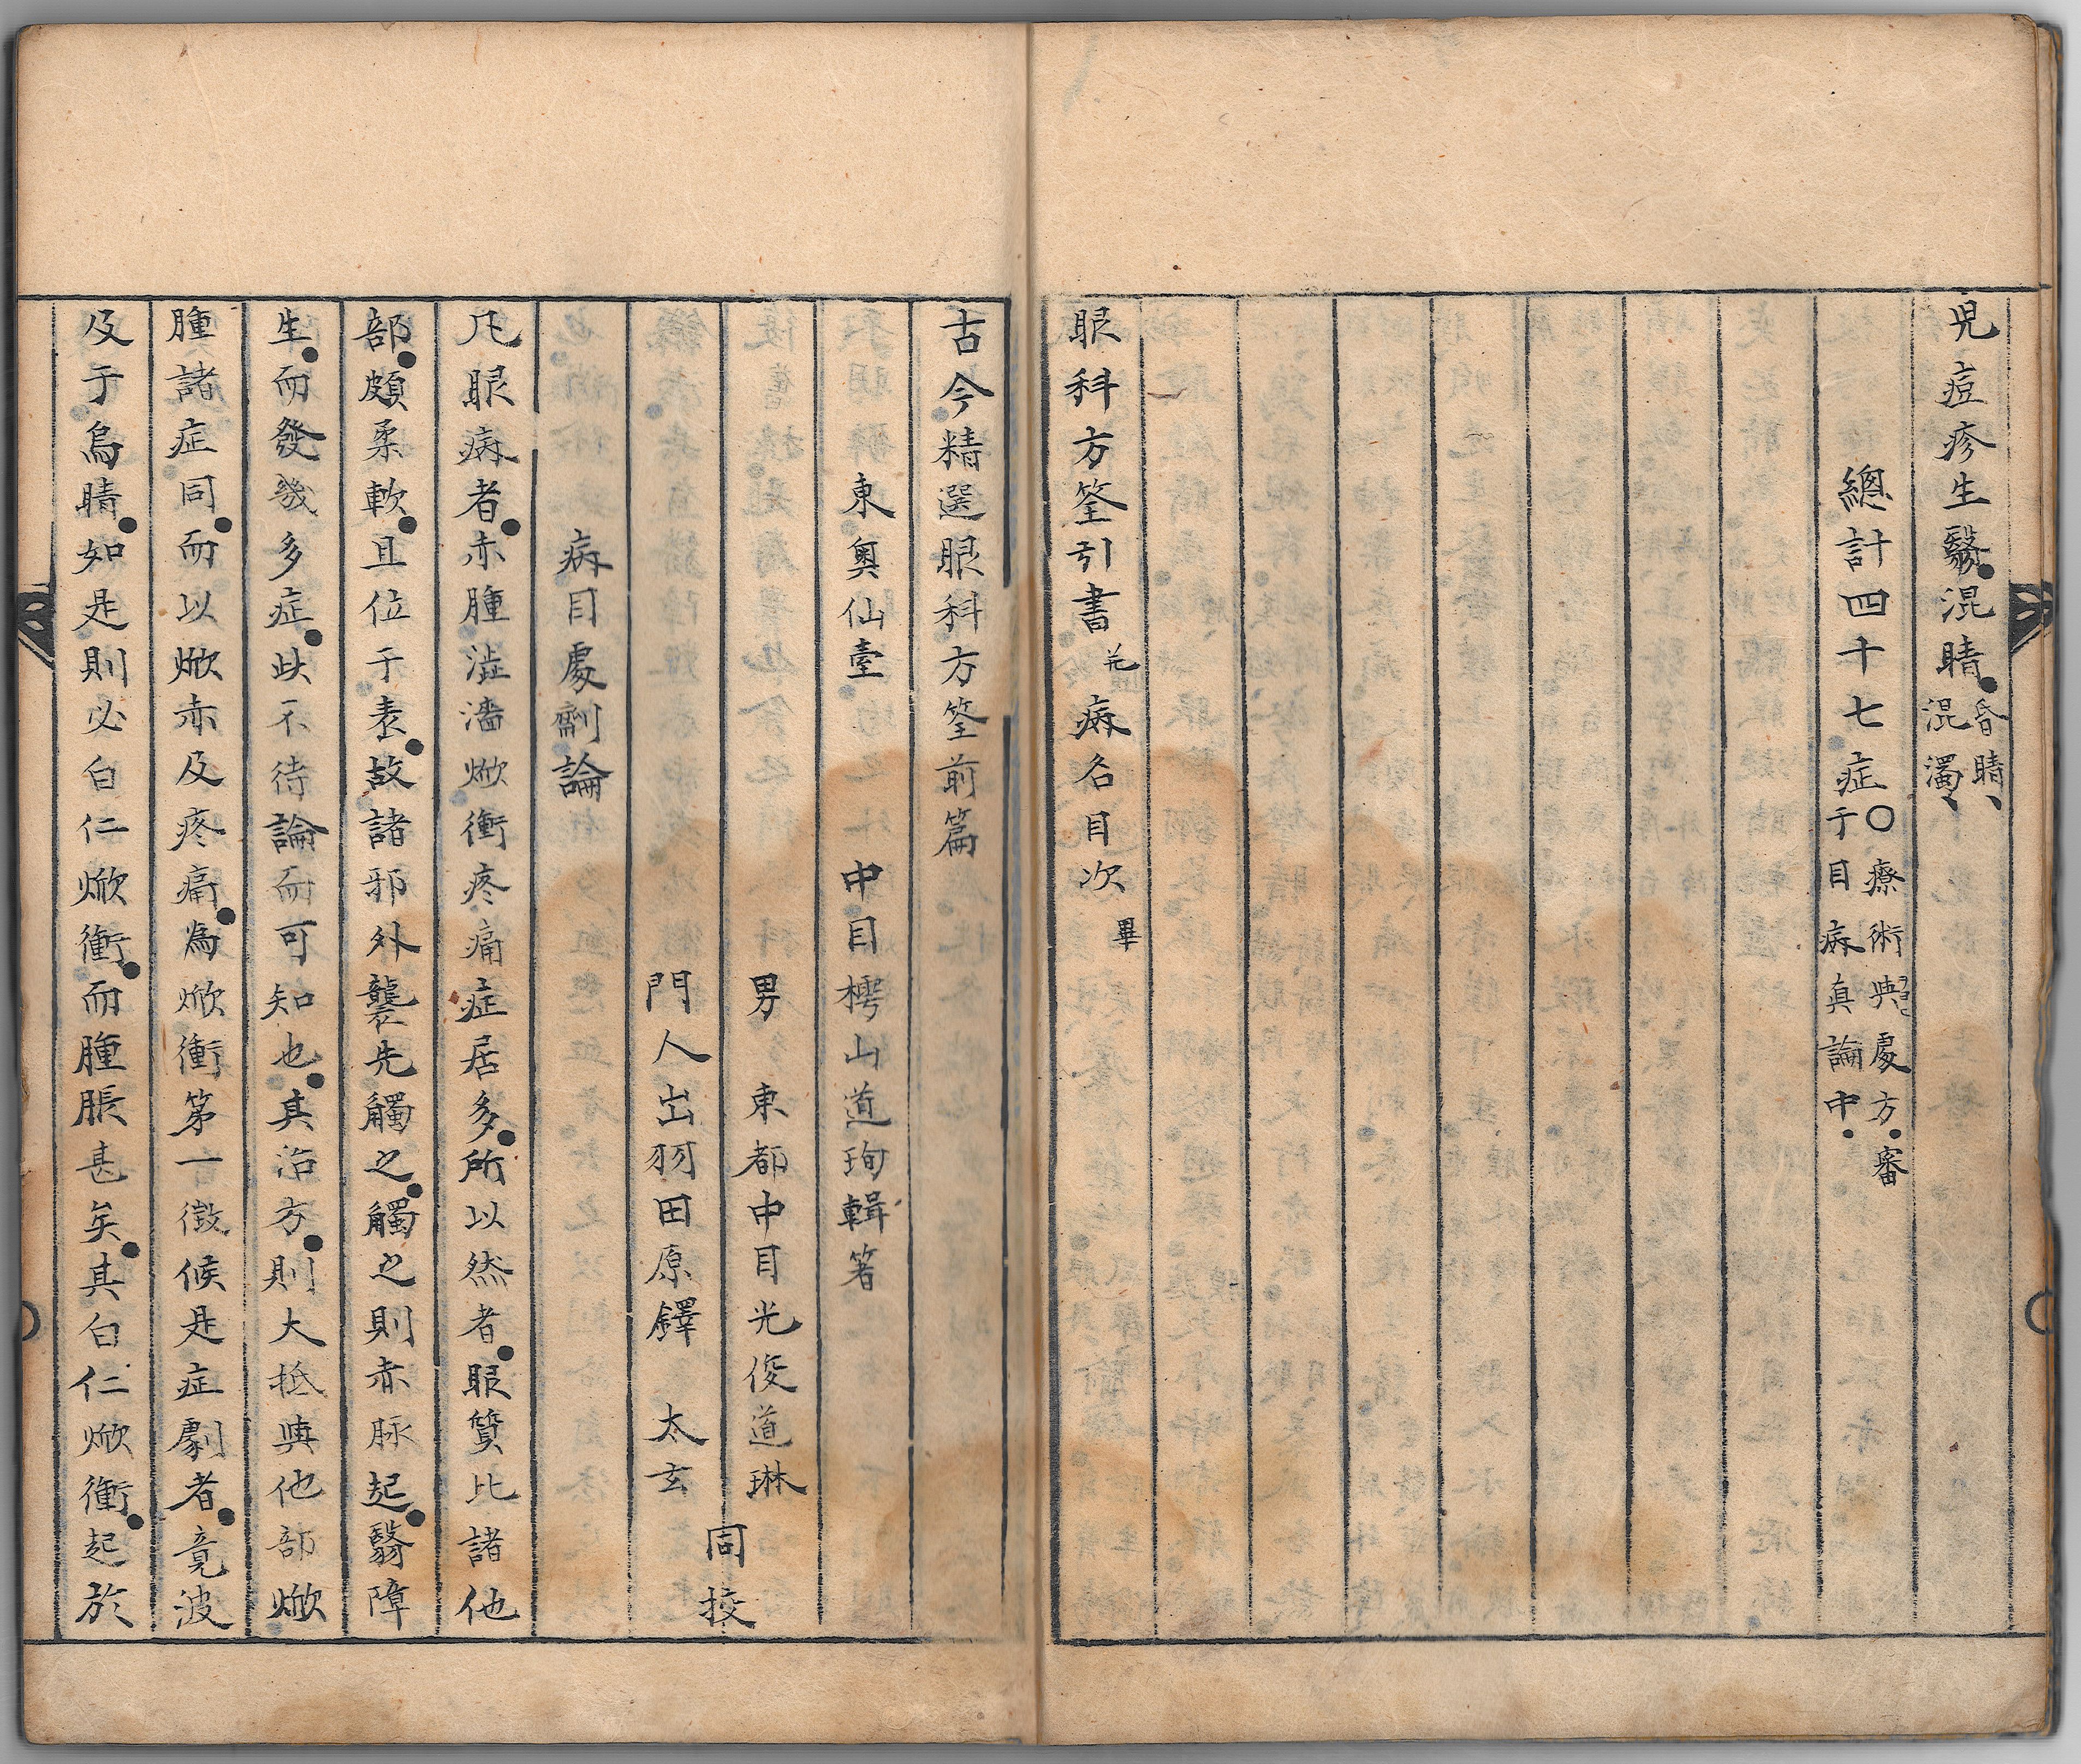 児痘疹生翳●混睛●昏睛、混濁、
總計四十七症○療術與處方●審于目病眞論中●
眼科方筌引書並病名目次畢
古今精選眼科方筌前篇
東奥仙臺　中目樗山道珣輯著
男　東都中目光俊道琳
門人出羽田原鐸　太玄
同挍
病目處劑論
凡眼病者●赤腫澁濇焮衝疼痛症居多●所以然者●眼質比諸他
部●頗柔軟●且位于表●故諸邪外襲先觸之●觸之則赤脉起●翳障
生●而發幾多症●此不待論而可知也●其治方●則大抵與他部焮
腫諸症同●而以焮赤及疼痛●為焮衝第一徴候是症劇者●竟波
及于烏睛●如是則必白仁焮衝●而腫脹甚矣●其白仁焮衝●起於